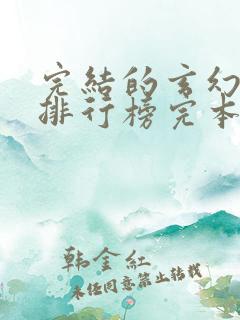 完結的玄幻
排行榜完本
韩金紅
未经同意禁止转载